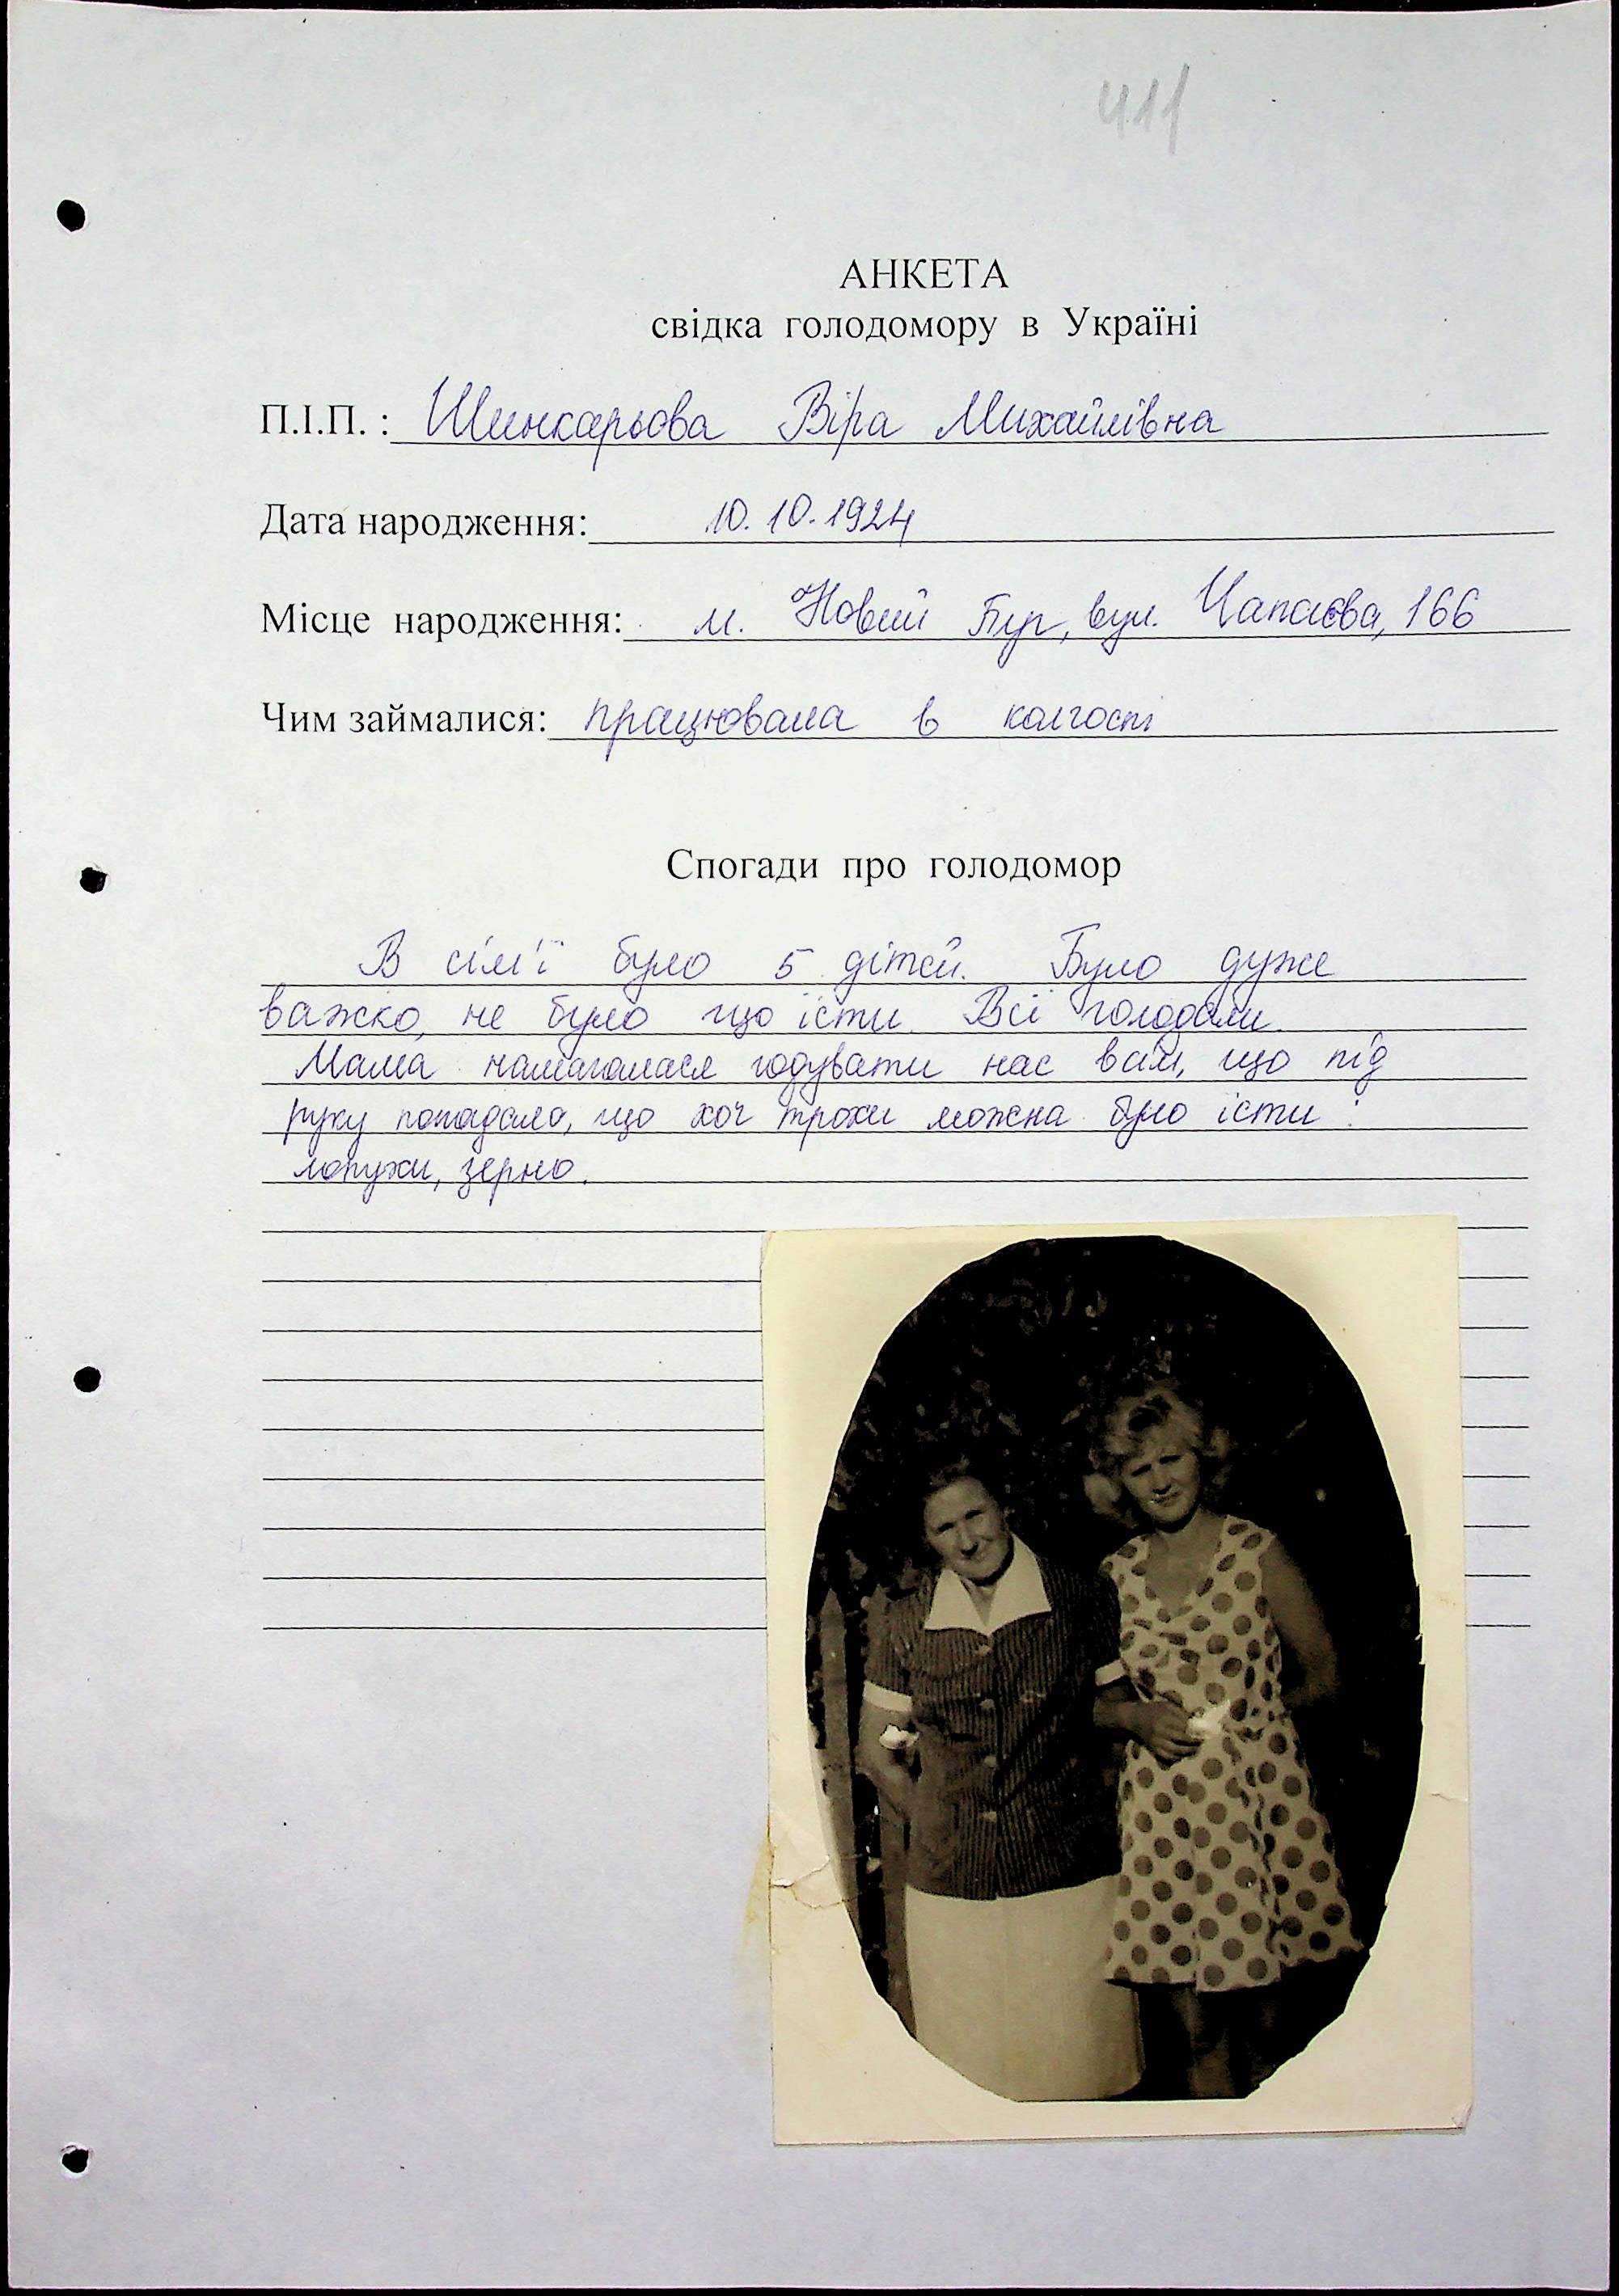 411
АНКЕТА
свідка голодомору в Україні
П.І.П. : Шинкарьова Віра Михайлівна
Дата народження: 10.10.1924
Місце народження: м. Новий Буг, вул. Чапаєва, 166
Чим займалися: працювала в колгоспі
Спогади про голодомор
В сім'ї було 5 дітей. Було дуже
важко, не було що їсти. Всі голодали.
Мама намагалася годувати нас всім, що під
руку попадало, що хоч трохи можна було їсти :
лопухи, зерно.